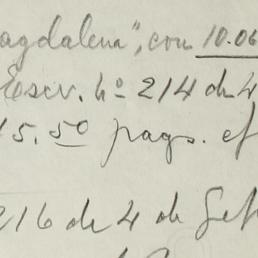 agdalena", con 10.06
Escr. nº 214 de 4
15.50 pags. ef
216 de 4 de Set